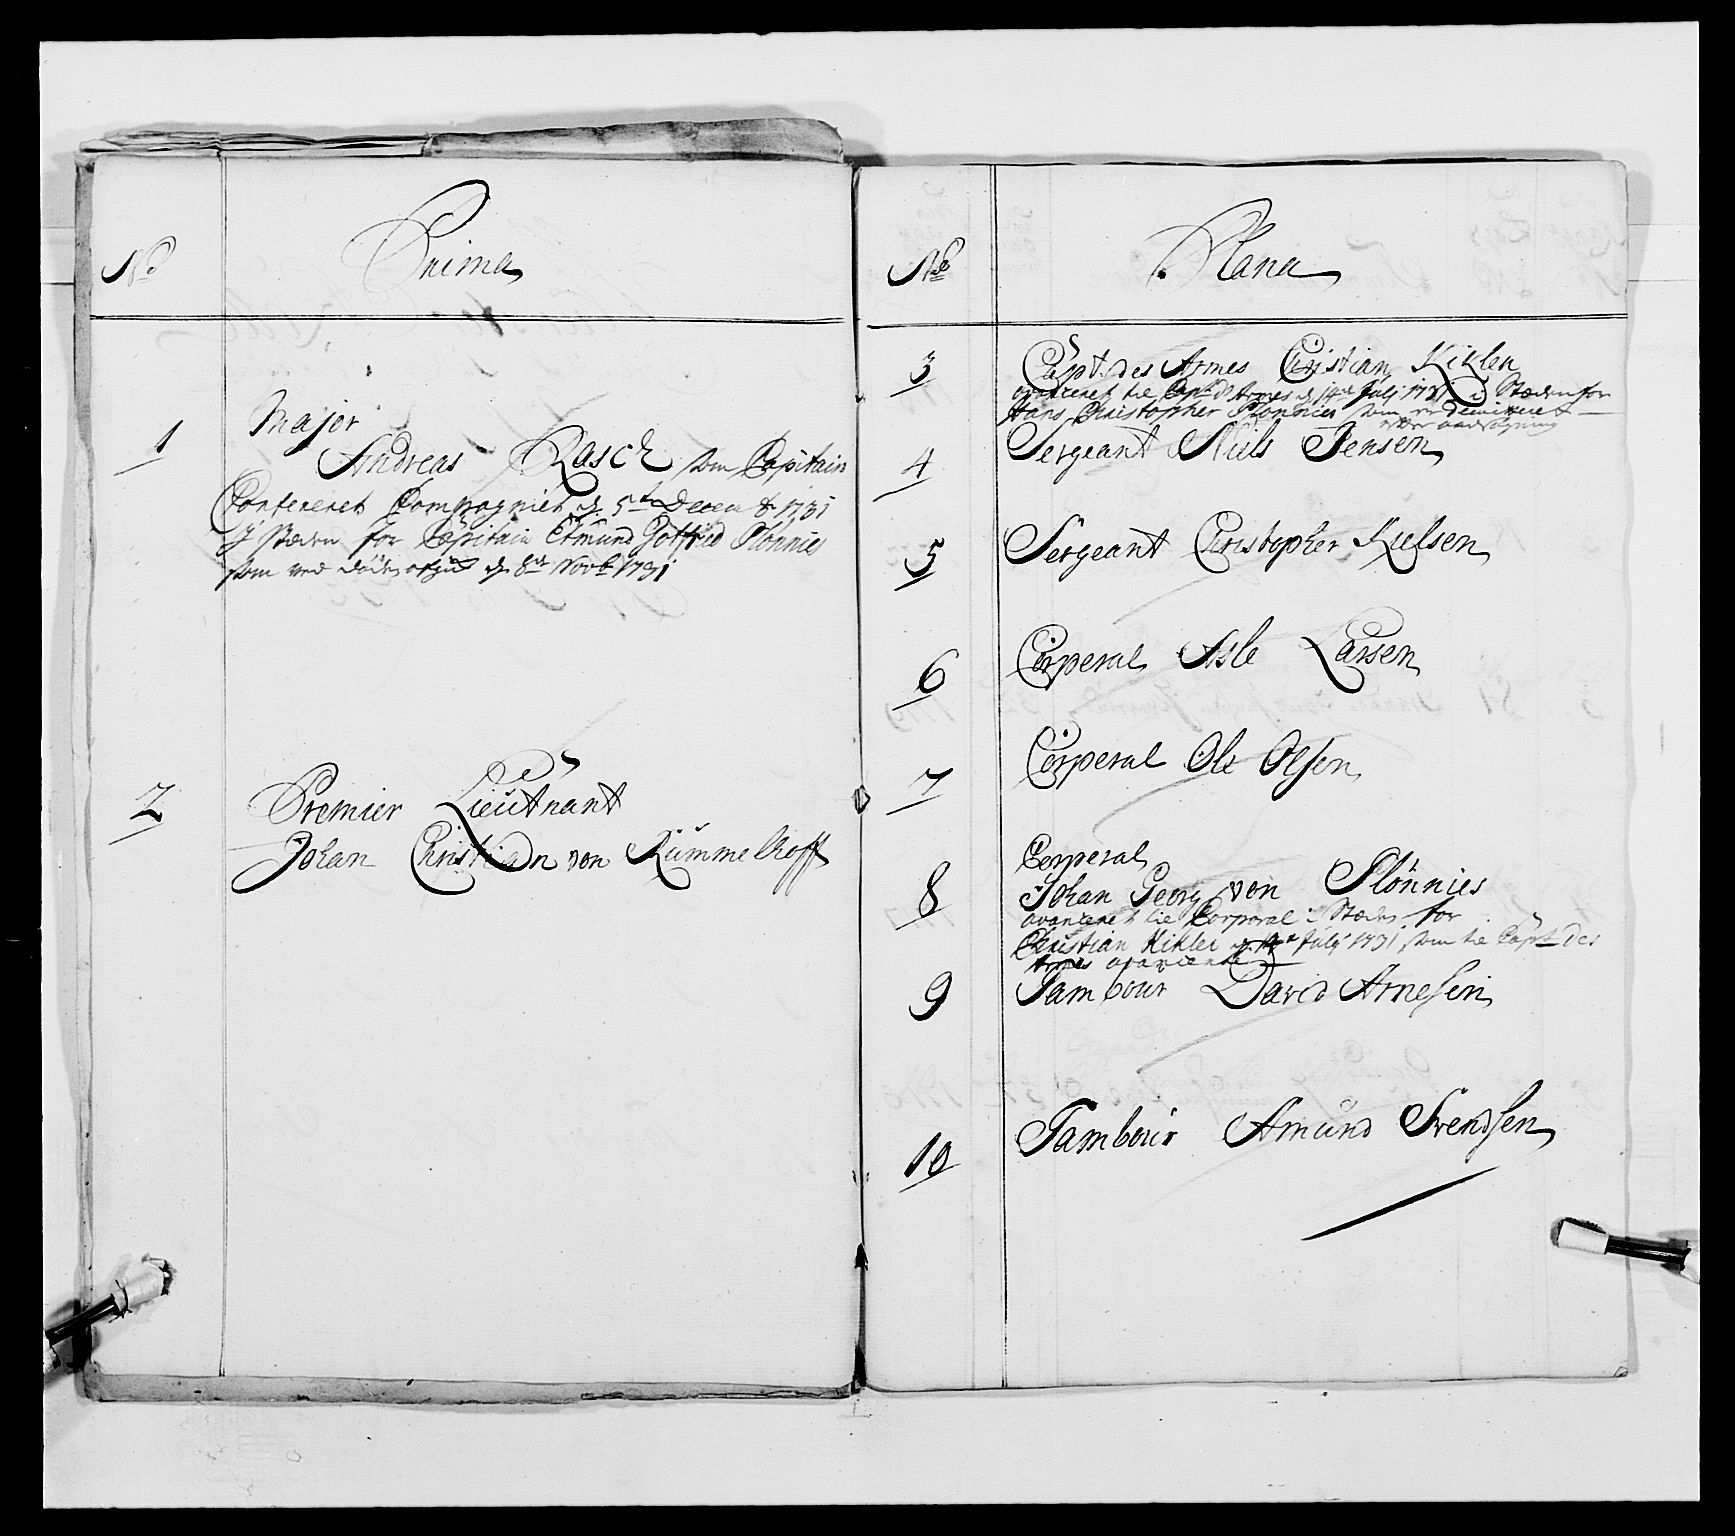 No
Prima
1
Major
Andreas Rasch som Capitain
Confereret Compagniet d. 5te Decembr 1731
J Stæden for Capitain Etmund Gotfried Plönnies
som ved Döden afgik d. 8de Novbr 1731
2
Premier Lieutnant
Johan Christian von Kummelhoff
No
Plana
3
Capt. des Armes Christian Kikler
avanceret til Capt d'Armes d. 14de Julj 1731 i Stæden for
Hans Christopher Plönnies som er demitteret
4
Sergeant Niels Jensen
5
Sergeant Christopher Kielsen
6
Corperal Asle Larsen
7
Corperal Ole Olsen
8
Corperal
Johan Georg von Plönnies
avanceret til Corporal i Stæden for
Christian Kikler d. 14de Julj 1731 som til Capt des
Armes avancerede
9
Tambour David Arnesen
10
Tambour Amund Svendsen